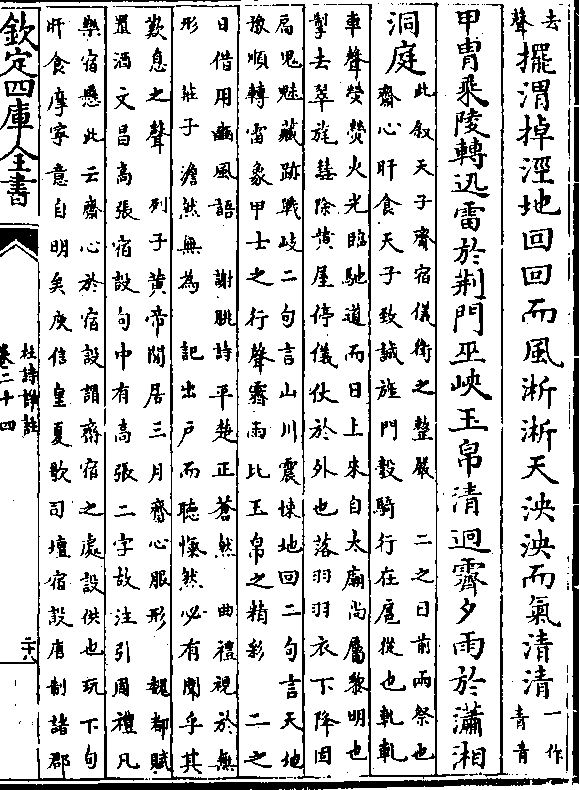 去聲擺渭掉涇地回回而風淅淅天泱泱而氣清清一作青青
甲冑乘陵轉迅雷於荆門巫峽玉帛清迥霽夕雨於瀟湘
洞庭
此叙天子齋宿儀衛之整嚴 二之日前兩祭也
齋心旰食天子致誠旌門轂騎行在扈從也軋軋
車聲熒熒火光臨馳道而日上來自太廟尚屬黎明也
掣去翠旄彗除黄屋停儀仗於外也落羽羽衣下降因
扁鬼魅藏跡戰岐二句言山川震悚地回二句言天地
豫順轉雷象甲士之行聲霽雨比玉帛之精彩 二之
日借用豳風語 謝朓詩平楚正蒼然 曲禮視於無
形 莊子澹然無為 記出戸而聽愾然必有聞乎其
歎息之聲 列子黄帝閒居三月齋心服形 魏都賦
置酒文昌高張宿設句中有高張二字故注引周禮凡
樂宿懸此云齋心於宿設謂齋宿之處設供也玩下句
旰食摩寧意自明矣庾信皇夏歌司壇宿設唐制諸郡
欽定四庫全書
杜詩詳註
卷二十四